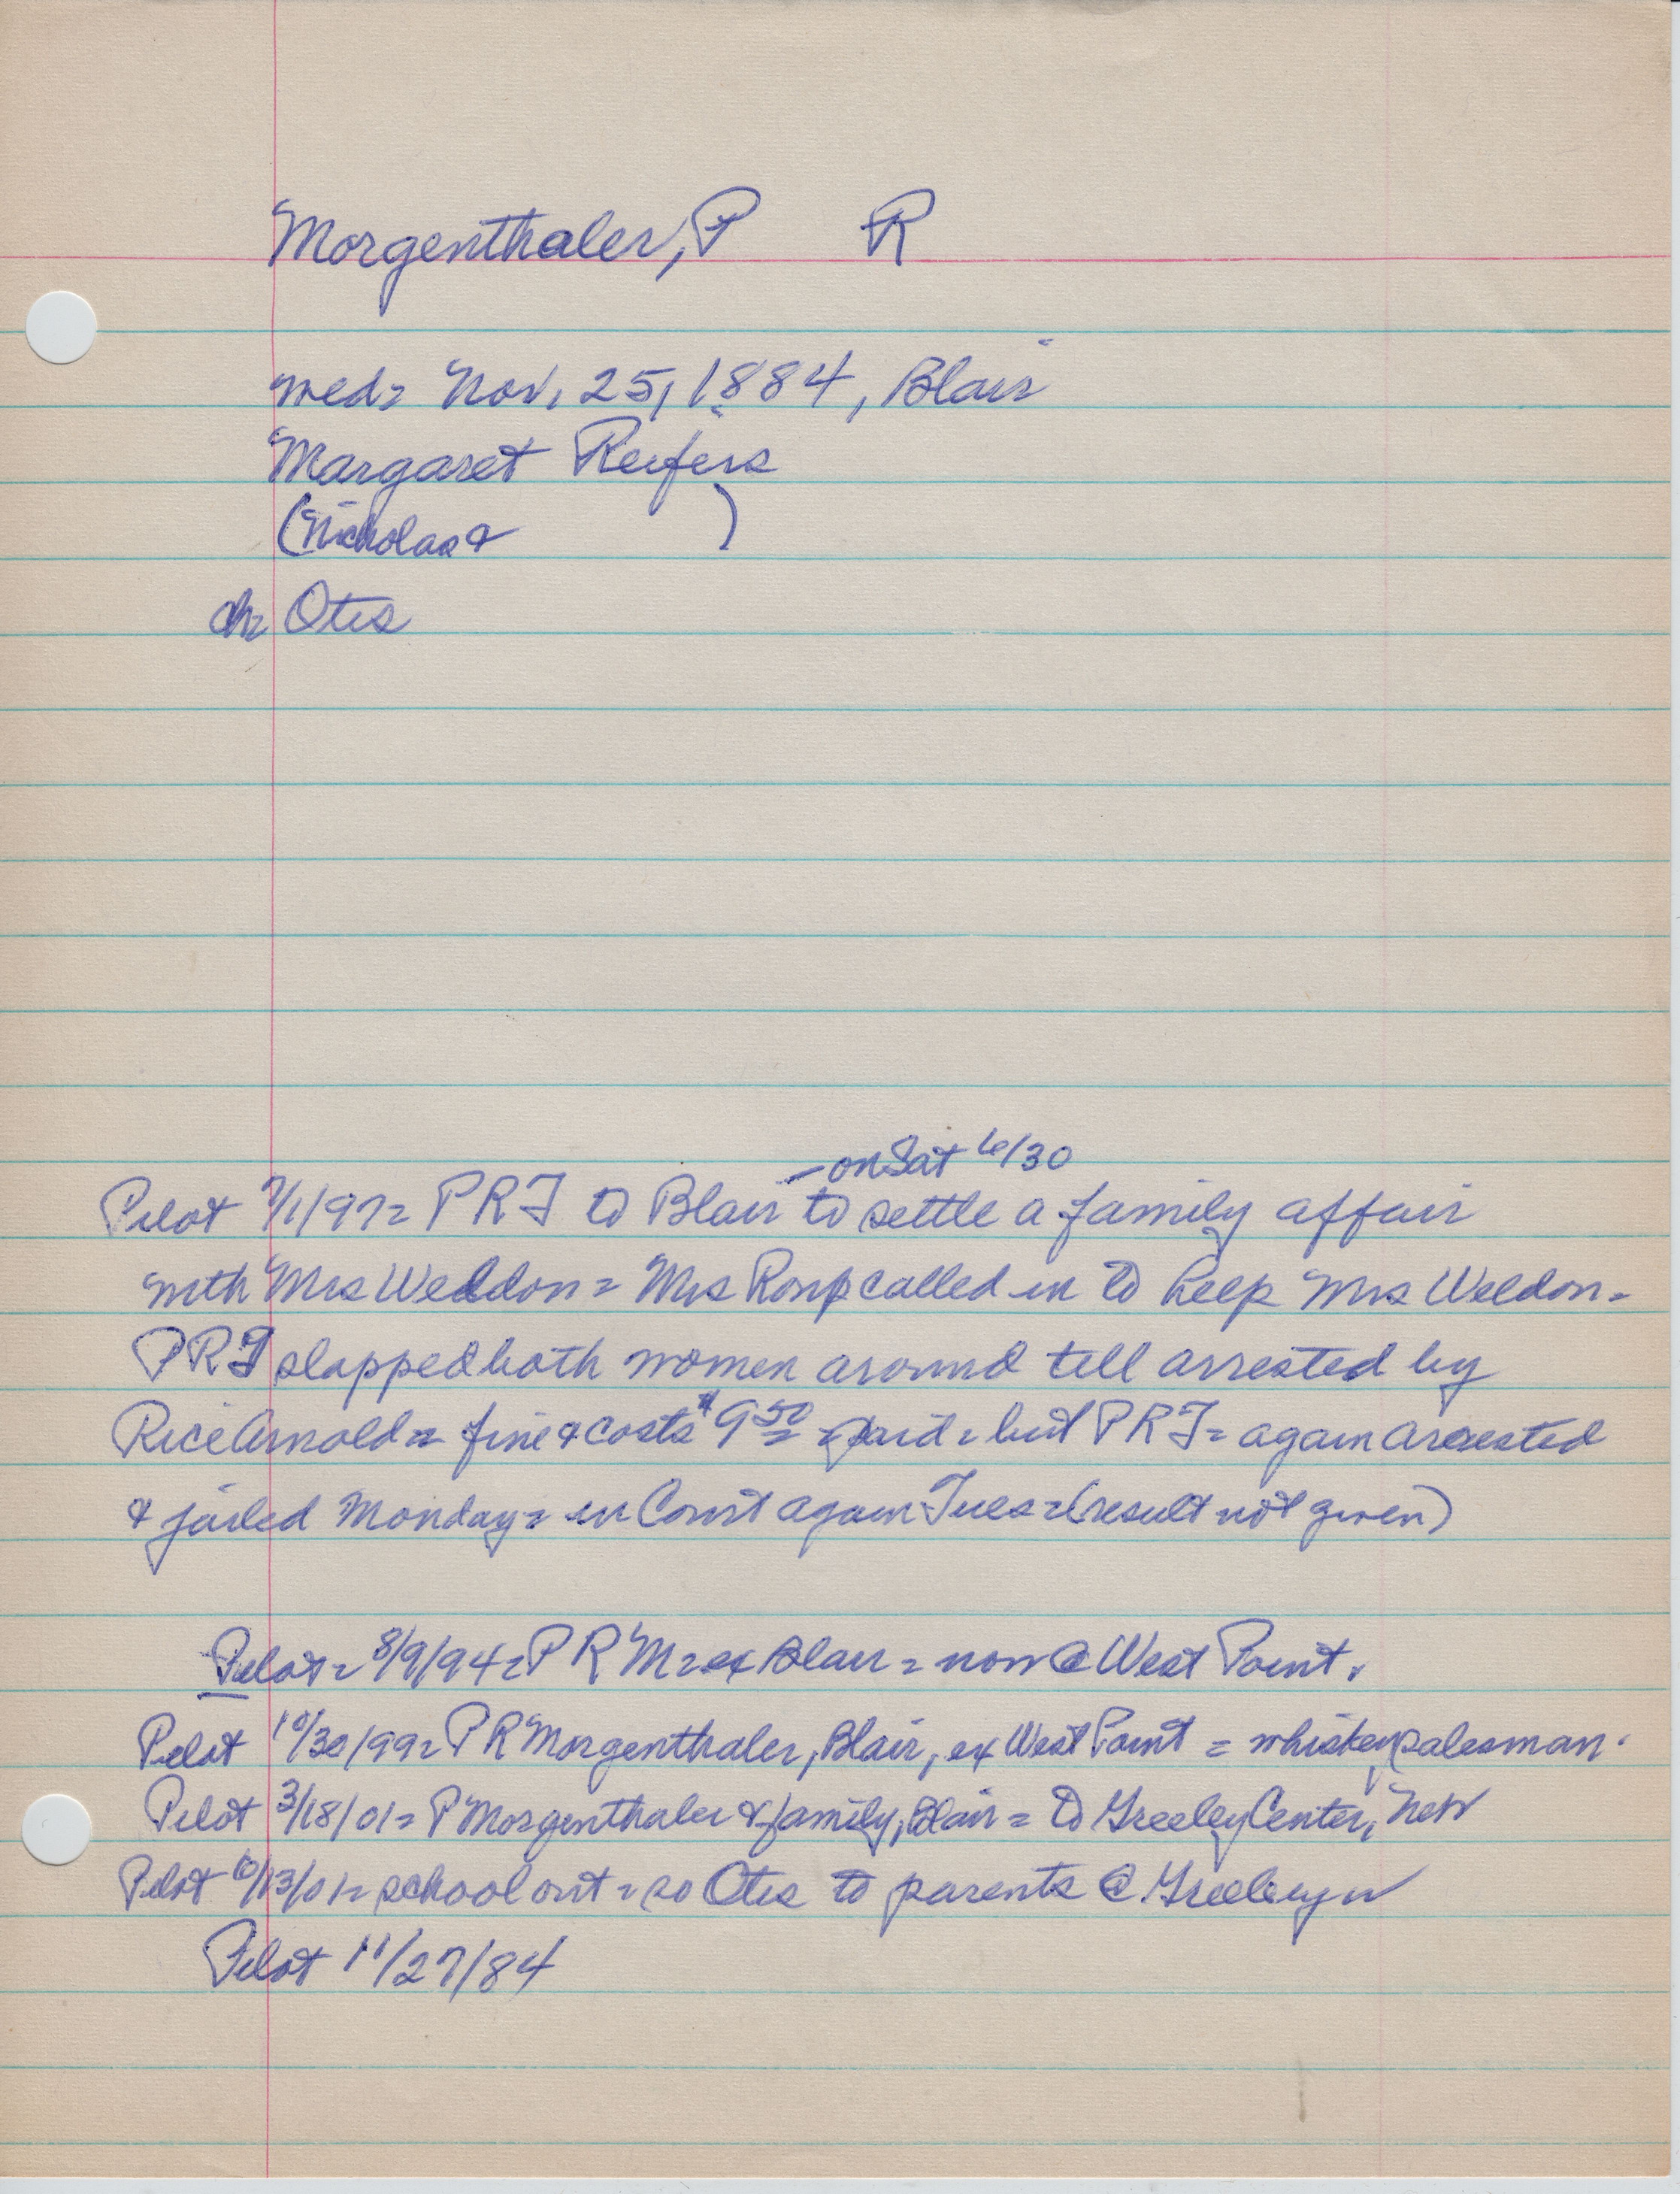 Morgenthaler, P R
wed= Nov, 25, 1884, Blair
Margaret Reifers
(Nicholas & )
ch= Otis
- on Sat 6/30
Pilot 7/1/97= P R T to Blair to settle a family affair
with Mrs Weddon = Mrs called in to help Mrs Weldon -
P R T slapped both women around till arrested by
Rice Arnold = fine & costs $9 50 = paid = but P R T = again arrested
& jailed Monday = in Court again Tues = (result not given)
Pilot = 8/9/94 = P R M = ex Blair = now @ West Point.
Pilot 10/30/99 = P R Morgenthaler, Blair, ex West Point = whiskey salesman.
Pilot 3/18/01 = P Morgenthaler & family, Blair = to Greeley Center, Neb
Pilot 10/13/01 = school out = so Otis to parents @ Greeley
Pilot 11/27/84